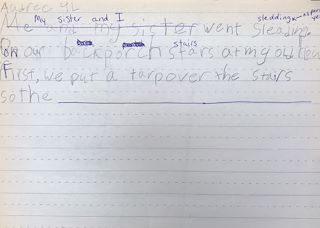 My sister and I sledding
Me and my sister went sleding
On our back porch stars at my old
stairs
First, we put a tarp over the stairs
so the